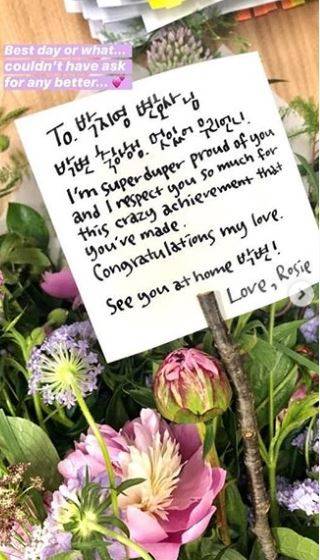 Best day or what...
couldn't have ask
for any better... 💕
To. 박지영 변호사 님
박변 축하해. 멋있어 우리언니.
I'm super duper proud of you
and I respect you so much for
this crazy achievement that
you've made.
Congratulations my love.
See you at home 박변!
Love, Rosie